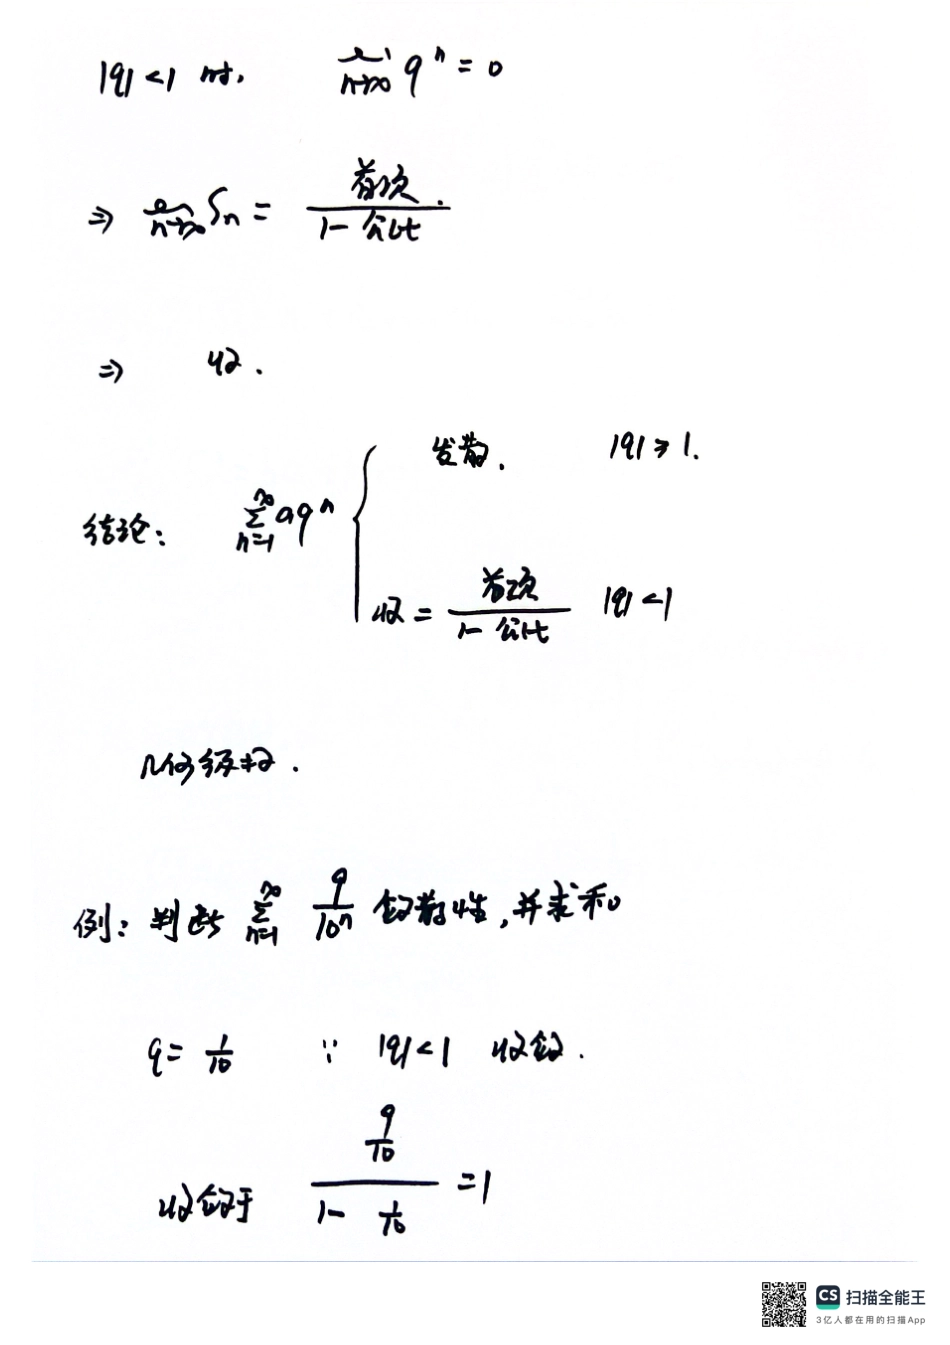 |q|<1 时, lim n→∞ q^n = 0
⇒ lim n→∞ Sn = 首项 / 1-公比 .
⇒ 收.
发散, |q| ≥ 1.
结论: ∑ n=1 ∞ aq^n {
收 = 首项 / 1-公比 |q|<1
几何级数.
例: 判断 ∑ n=1 ∞ 9/10^n 敛散性, 并求和
q = 1/10 ∵ |q|<1 收敛.
收敛于 (9/10) / (1 - 1/10) = 1
CS 扫描全能王
3亿人都在用的扫描App